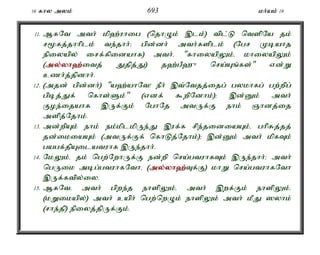 16 கால அலம் 693 மர்யம் 19
11. ஆகவே அவர் மிஹ்ராபை (தொழும் இடம்) விட்டு வெளியே தம்
சமூகத்தாரிடம் வந்தார்; பின்னர் அவர்களிடம் (பேச முடியாத
நிலையில் சைக்கினையாக) அவர், "காலையிலும், மாலையிலும்
(அல்லாஹ்வைத் துதித்து) தஹ்பீஹு செய்யுங்கள்" என்று
உணர்த்தினார்.
12. (அதன் பின்னர்) "யஹ்யாவே! நீர் இவ்வேதத்தைப் பலமாகப் பற்றிப்
பிடித்துக் கொள்ளும்" (எனக் கூறினோம்); இன்னும் அவர்
குழந்தையாக இருக்கும் போதே அவருக்கு நாம் ஞானத்தை
அளித்தோம்.
13. அன்றியும் நாம் நம்மிடமிருந்து இரக்க சிந்தனையையும், பரிசுத்தத்
தன்மையையும் (அவருக்குக் கொடுத்தோம்); இன்னும் அவர் மிகவும்
பயபக்தியுடையவராக இருந்தார்.
14. மேலும், தம் பெற்றோருக்கு நன்றி செய்பவராகவும் இருந்தார்; அவர்
பெருமை அடிப்பவராகவோ, (அல்லாஹ்வுக்கு) மாறு செய்பவராகவோ
இருக்கவில்லை.
15. ஆகவே அவர் பிறந்த நாளிலும், அவர் இறக்கும் நாளிலும்,
(மறுமையில்) அவர் உயிர் பெற்றெழும் நாளிலும் அவர் மீது ஸலாம்
(சாந்தி) நிலைத்திருக்கும்.